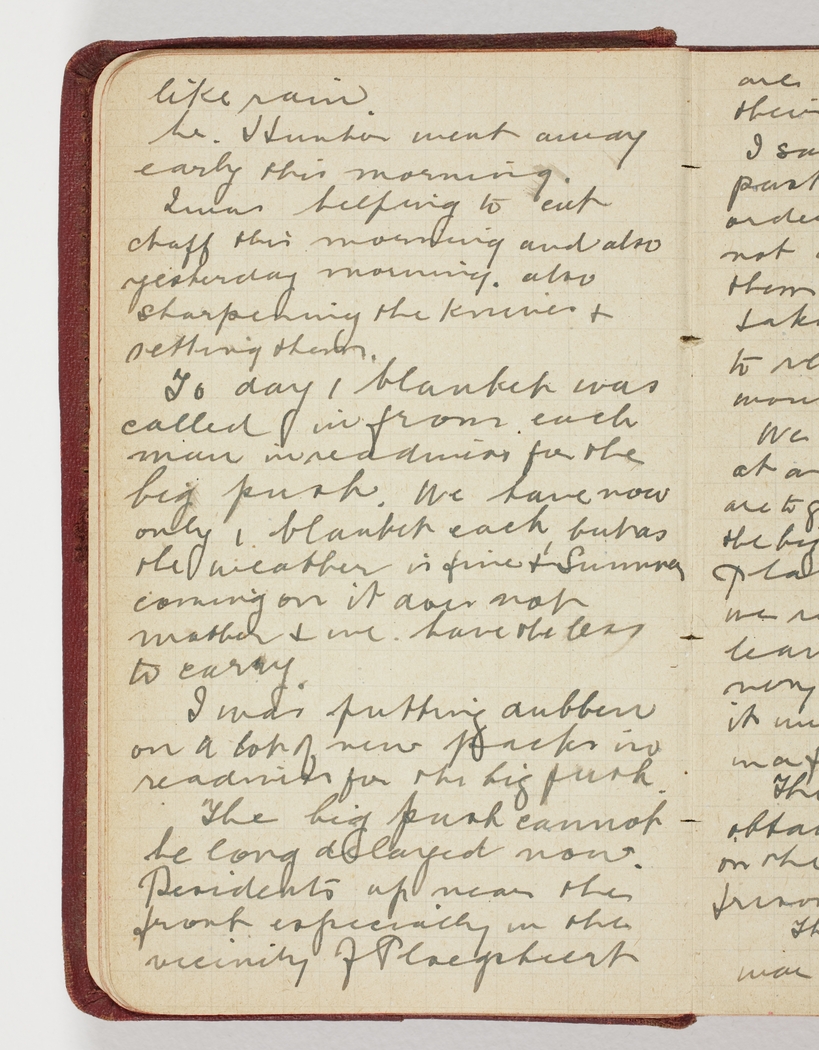 like rain.
Lt. Hunter went away
early this morning.
I was helping to cut
chaff this morning and also
yesterday morning. also
sharpening the knives &
setting them.
To day 1 blanket was
called in from each
man in readiness for the
big push. We have now
only 1 blanket each, but as
the weather is fine & Summer
coming on it does not
matter & we have the less
to carry.
I was putting dubbin
on a lot of new packs in
readiness for the big push.
The big push cannot
be long delayed now.
Residents up near the
front especially in the
vicinity of Ploegsteert
are
their
I sa
past
orde
not
them
take
to re
moun
We
at a
are to g
the big
Pla
we
lea
very
it
in a
Th
obta
on the
Th
war